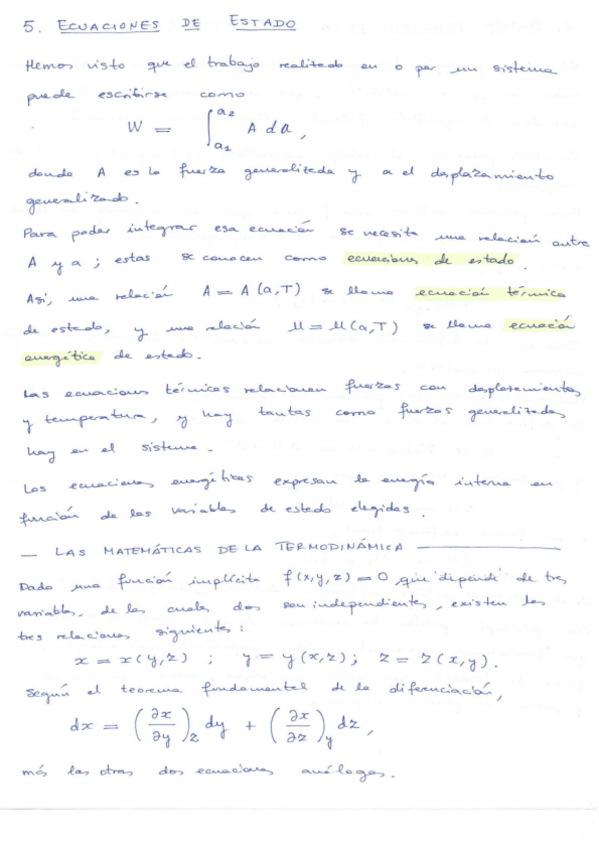 5. ECUACIONES DE ESTADO
Hemos visto que el trabajo realizado en o por un sistema
puede escribirse como
W = ∫_{a1}^{a2} A da,
donde A es la fuerza generalizada y a el desplazamiento
generalizado.
Para poder integrar esa ecuación se necesita una relación entre
A y a; estas se conocen como ecuaciones de estado.
Así, una relación A = A(a,T) se llama ecuación térmica
de estado, y una relación U = U(a,T) se llama ecuación
energética de estado.
Las ecuaciones térmicas relacionan fuerzas con desplazamientos
y temperatura, y hay tantas como fuerzas generalizadas
hay en el sistema.
Las ecuaciones energéticas expresan la energía interna en
función de las variables de estado elegidas.
— LAS MATEMÁTICAS DE LA TERMODINÁMICA —
Dada una función implícita f(x,y,z) = 0 que "depende" de tres
variables, de las cuales dos son independientes, existen las
tres relaciones siguientes:
x = x(y,z) ; y = y(x,z); z = z(x,y).
Según el teorema fundamental de la diferenciación,
dx = (∂x/∂y)_z dy + (∂x/∂z)_y dz,
más las otras dos ecuaciones análogas.